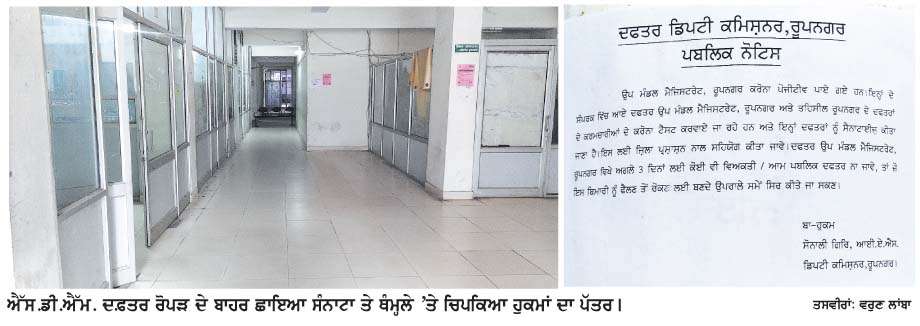 ਦਫਤਰ ਡਿਪਟੀ ਕਮਿਸ਼ਨਰ,ਰੂਪਨਗਰ
ਪਬਲਿਕ ਨੋਟਿਸ
ਉਪ ਮੰਡਲ ਮੈਜਿਸਟਰੇਟ, ਰੂਪਨਗਰ ਕਰੋਨਾ ਪੋਜੀਟੀਵ ਪਾਏ ਗਏ ਹਨ।ਇਨ੍ਹਾਂ ਦੇ
ਸੰਪਰਕ ਵਿੱਚ ਆਏ ਦਫਤਰ ਉਪ ਮੰਡਲ ਮੈਜਿਸਟਰੇਟ, ਰੂਪਨਗਰ ਅਤੇ ਤਹਿਸੀਲ ਰੂਪਨਗਰ ਦੇ ਦਫਤਰਾਂ
ਦੇ ਕਰਮਚਾਰੀਆਂ ਦੇ ਕਰੋਨਾ ਟੈਸਟ ਕਰਵਾਏ ਜਾ ਰਹੇ ਹਨ ਅਤੇ ਇਨ੍ਹਾਂ ਦਫਤਰਾਂ ਨੂੰ ਸੈਨਾਟਾਈਜ਼ ਕੀਤਾ
ਜਾਣਾ ਹੈ।ਇਸ ਲਈ ਜ਼ਿਲਾ ਪ੍ਰਸ਼ਾਸ਼ਨ ਨਾਲ ਸਹਿਯੋਗ ਕੀਤਾ ਜਾਵੇ।ਦਫਤਰ ਉਪ ਮੰਡਲ ਮੈਜਿਸਟਰੇਟ,
ਰੂਪਨਗਰ ਵਿਖੇ ਅਗਲੇ 3 ਦਿਨਾਂ ਲਈ ਕੋਈ ਵੀ ਵਿਅਕਤੀ / ਆਮ ਪਬਲਿਕ ਦਫਤਰ ਨਾ ਜਾਵੇ, ਤਾਂ ਜੋ
ਇਸ ਬਿਮਾਰੀ ਨੂੰ ਫੈਲਣ ਤੋਂ ਰੋਕਣ ਲਈ ਬਣਦੇ ਉਪਰਾਲੇ ਸਮੇਂ ਸਿਰ ਕੀਤੇ ਜਾ ਸਕਣ।
ਬਾ-ਹੁਕਮ
ਸੋਨਾਲੀ ਗਿਰਿ, ਆਈ.ਏ.ਐਸ.
ਡਿਪਟੀ ਕਮਿਸ਼ਨਰ,ਰੂਪਨਗਰ।
ਐੱਸ.ਡੀ.ਐੱਮ. ਦਫ਼ਤਰ ਰੋਪੜ ਦੇ ਬਾਹਰ ਛਾਇਆ ਸੰਨਾਟਾ ਤੇ ਥੰਮ੍ਹਲੇ 'ਤੇ ਚਿਪਕਿਆ ਹੁਕਮਾਂ ਦਾ ਪੱਤਰ।
ਤਸਵੀਰਾਂ: ਵਰੁਣ ਲਾਂਬਾ